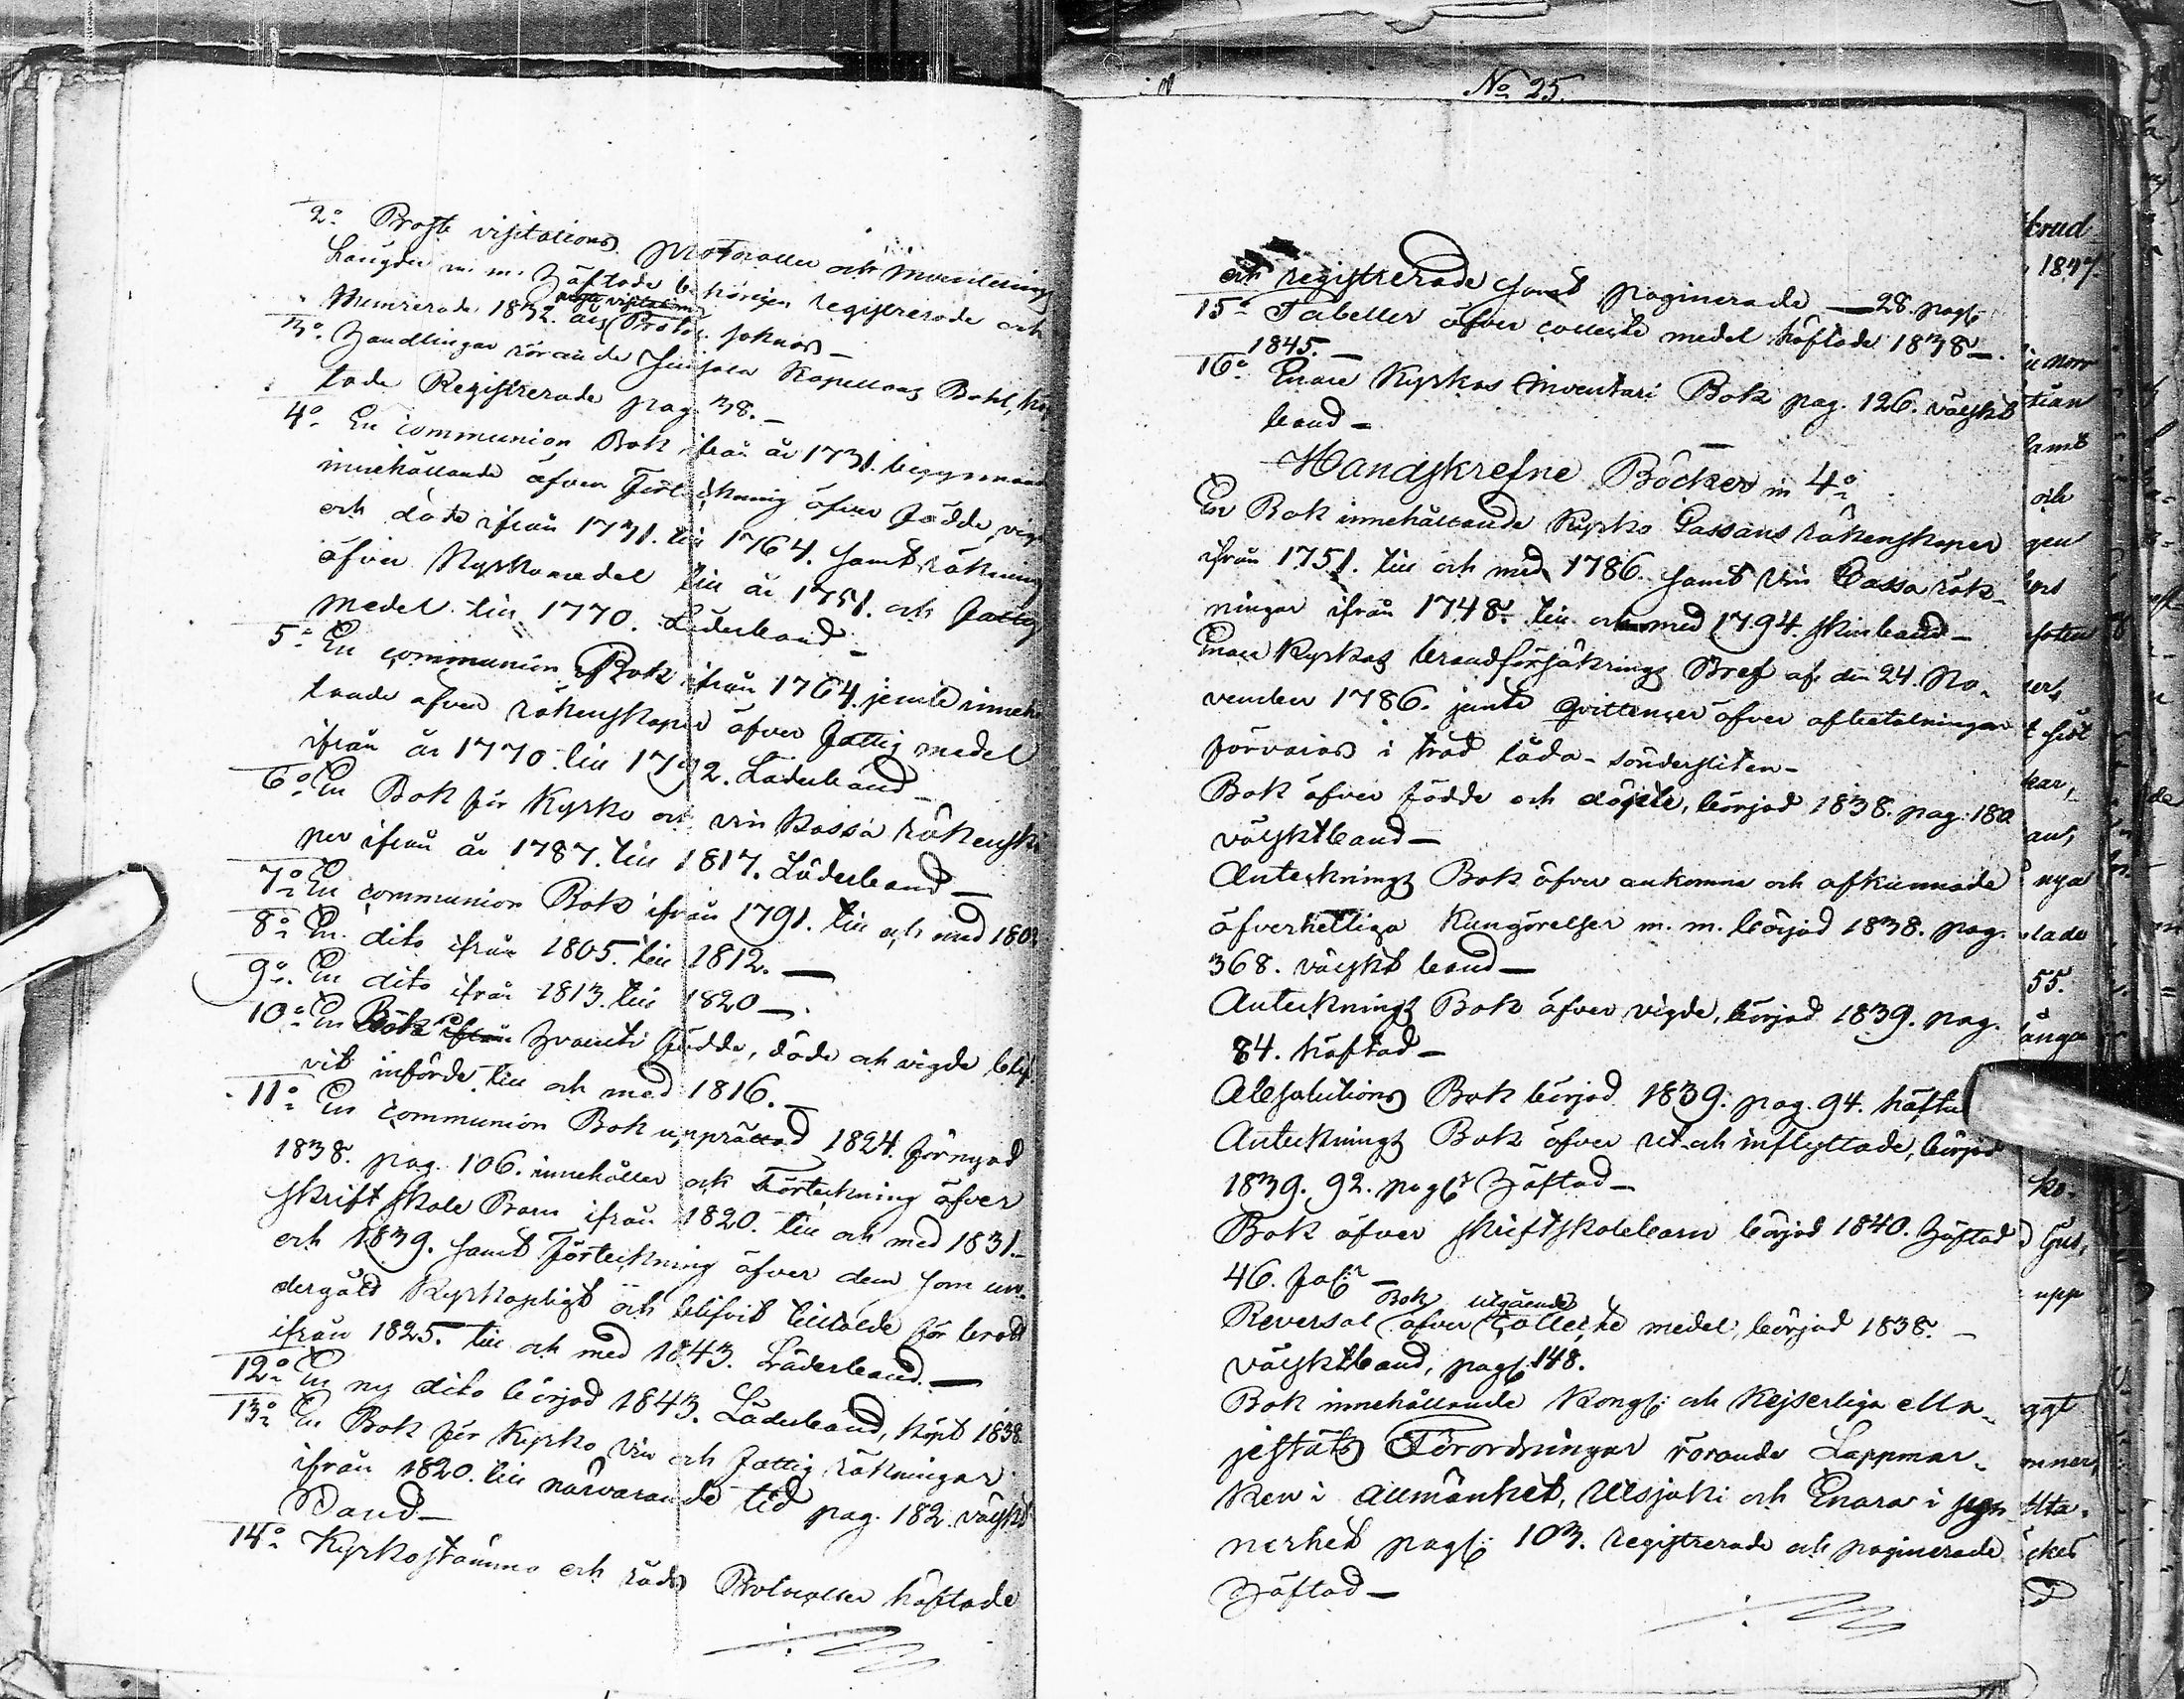 2o Prosts visitations Protocoller och Inventerings
Längder m. m. Häftade behörigen registrerade och
Numrerade 1832 års visitations Protoc. saknas—
3o Handlingar rörande Kapellans Bohl, häf
tade Registrerade pag. 38.—
4o En communion Bok ifrån år 1731. begynnand
innehållande äfven Förtekning öfver födde, vigd
och döde ifrån 1731. till 1764. samt räkning
öfver Kyrkomedel till år 1751. och fattig
medel till 1770. Läderband—
5o En communion Bok ifrån 1764. jemte innehål
lande äfven räkenskaper öfver fattig medel
ifrån år 1770 till 1792. Läderband—
6o En Bok för Kyrko och vin Kassa räkenska
per ifrån år 1787. till 1817. Läderband—
7o En communion Bok ifrån 1791. till och med 180
8o En dito ifrån 1805. till 1812.—
9o En dito ifrån 1813. till 1820—
10o En Bok ifrån hvaruti födde, döde och vigde blif
vit införde till och med 1816.—
11o En communion Bok upprättad 1824. förnyad
1838. pag. 106. innehåller ock Förteckning öfver
skriftskole Barn ifrån 1820. till och med 1831—
och 1839. samt Förteckning öfver dem som un-
dergått Kyrkoplikt och blifvit tilltalde för brott
ifrån 1825. till och med 1843. Läderband.—
12o En ny dito börjad 1843. Läderband, köpt 1838
13o En Bok för Kyrko, Vin och fattig räkningar
ifrån 1820. till närvarande tid pag. 182. välskt
Band—
14o Kyrkostämmo och råds Protocoller häftade
No 25.
och registrerade samt paginerade — 28. pag:
15o Tabeller öfver collecte medel häftade 1838—
1845.—
16o Enare Kyrkas Inventari Bok pag. 126. välskt
band—
Handskrefne Böcker in 4o
En Bok innehållande Kyrko Cassans räkenskaper
ifrån 1751. till och med 1786. samt Vin Cassa räk-
ningar ifrån 1748. till och med 1794. skinband—
Enare Kyrkas brandförsäkrings Bref af den 24. No-
vember 1786. jemte qvittenser öfver afbetalningar
förvaras i träd låda—söndersliten—
Bok öfver födde och döpte, börjad 1838. pag. 180
välsktband—
Antecknings Bok öfver ankomna och afkunnade
öfverhetliga Kungörelser m. m. börjad 1838. pag.
368. välskt band—
Antecknings Bok öfver vigde, börjad 1839. pag.
84. häftad—
Absolutions Bok börjad 1839. pag. 94. häftad
Antecknings Bok öfver ut och inflyttade, börjad
1839. 92. pag:r Häftad—
Bok öfver skriftskolebarn börjad 1840. Häftad
46. pag:r—
Reversal Bok öfver utgående Collecte medel börjad 1838.—
välsktband, pag: 148.
Bok innehållande Kongl: och Kejserliga Ma-
jestäts Förordningar rörande Lappmar-
ken i allmänhet, Utsjoki och Enara i syn-
nerhet pag: 103. registrerade och paginerade
Häftad—